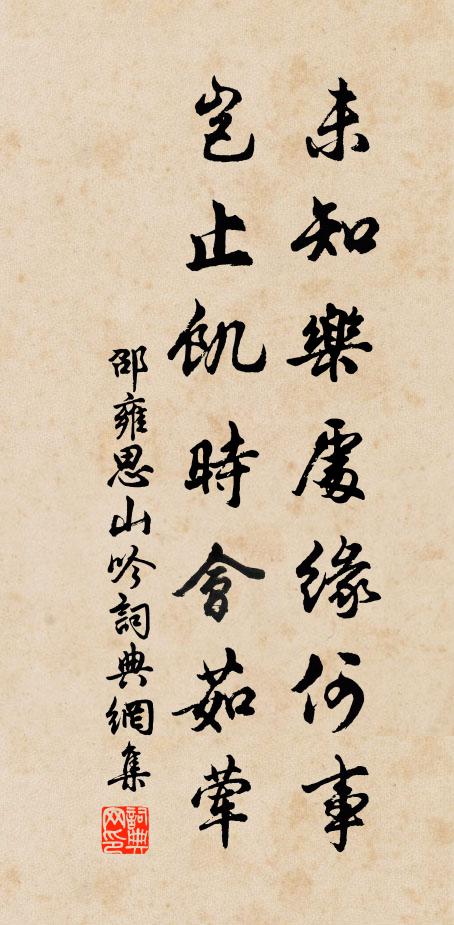 未知樂處緣何事
豈止飢時會茹葷
邵雍思山吟詞典網集
詞典网印